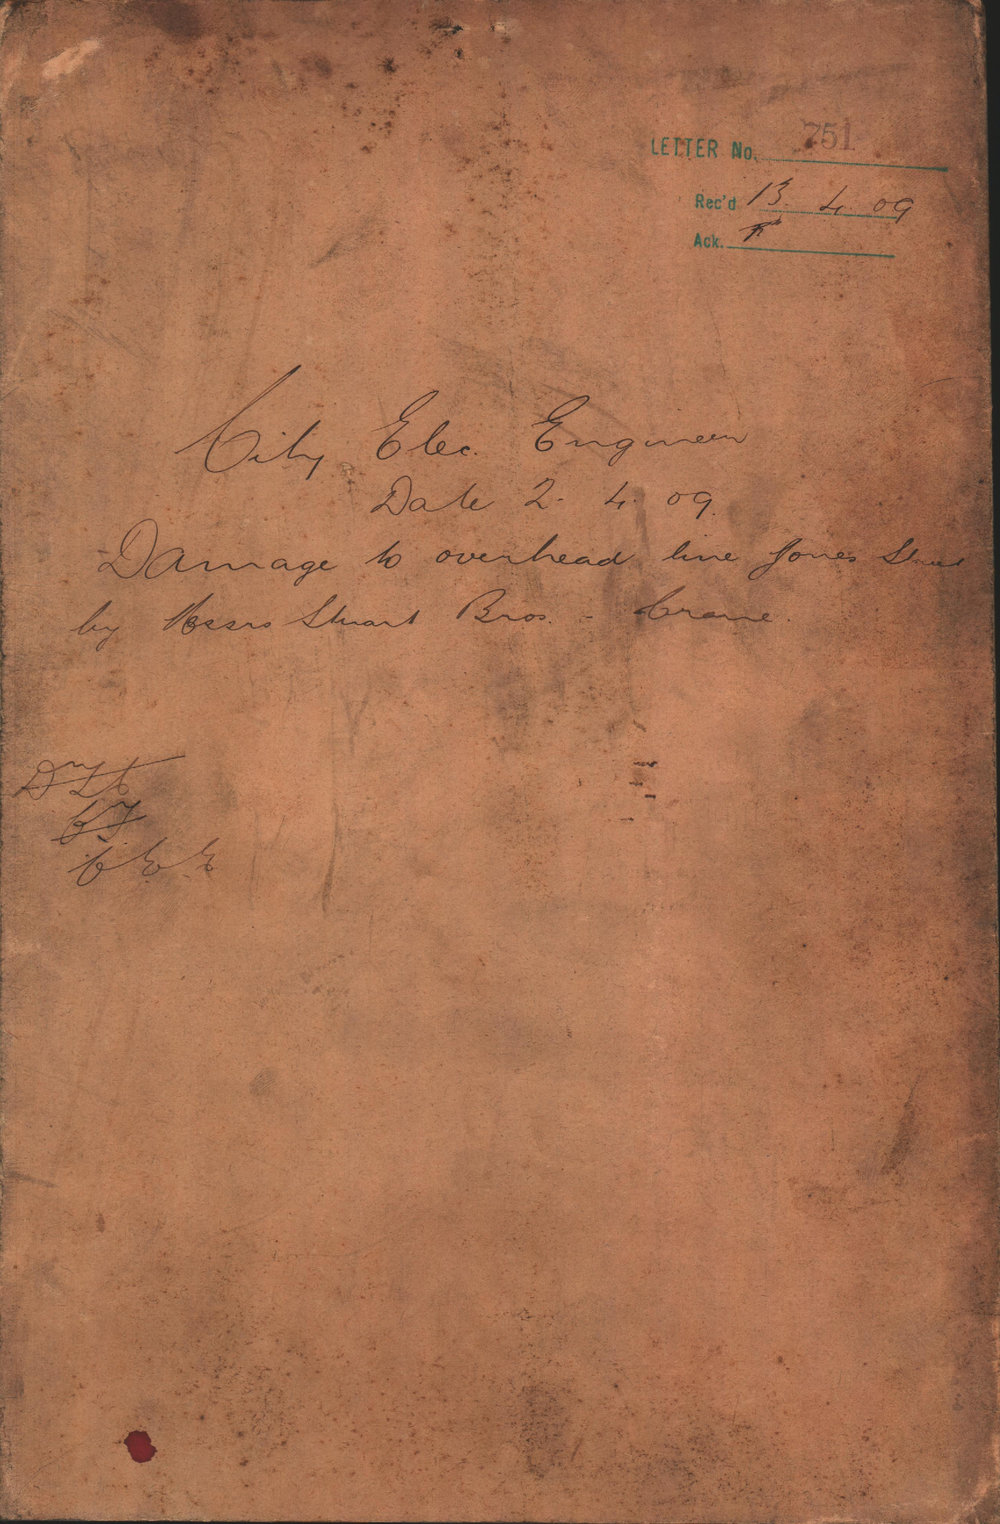 LETTER No. 751
Rec'd 13. 4. 09
Ack.
City Elec. Engineer
Date 2. 4. 09.
Damage to overhead line Jones Street
by Messrs Stuart Bros. - Crane.
C.E.E